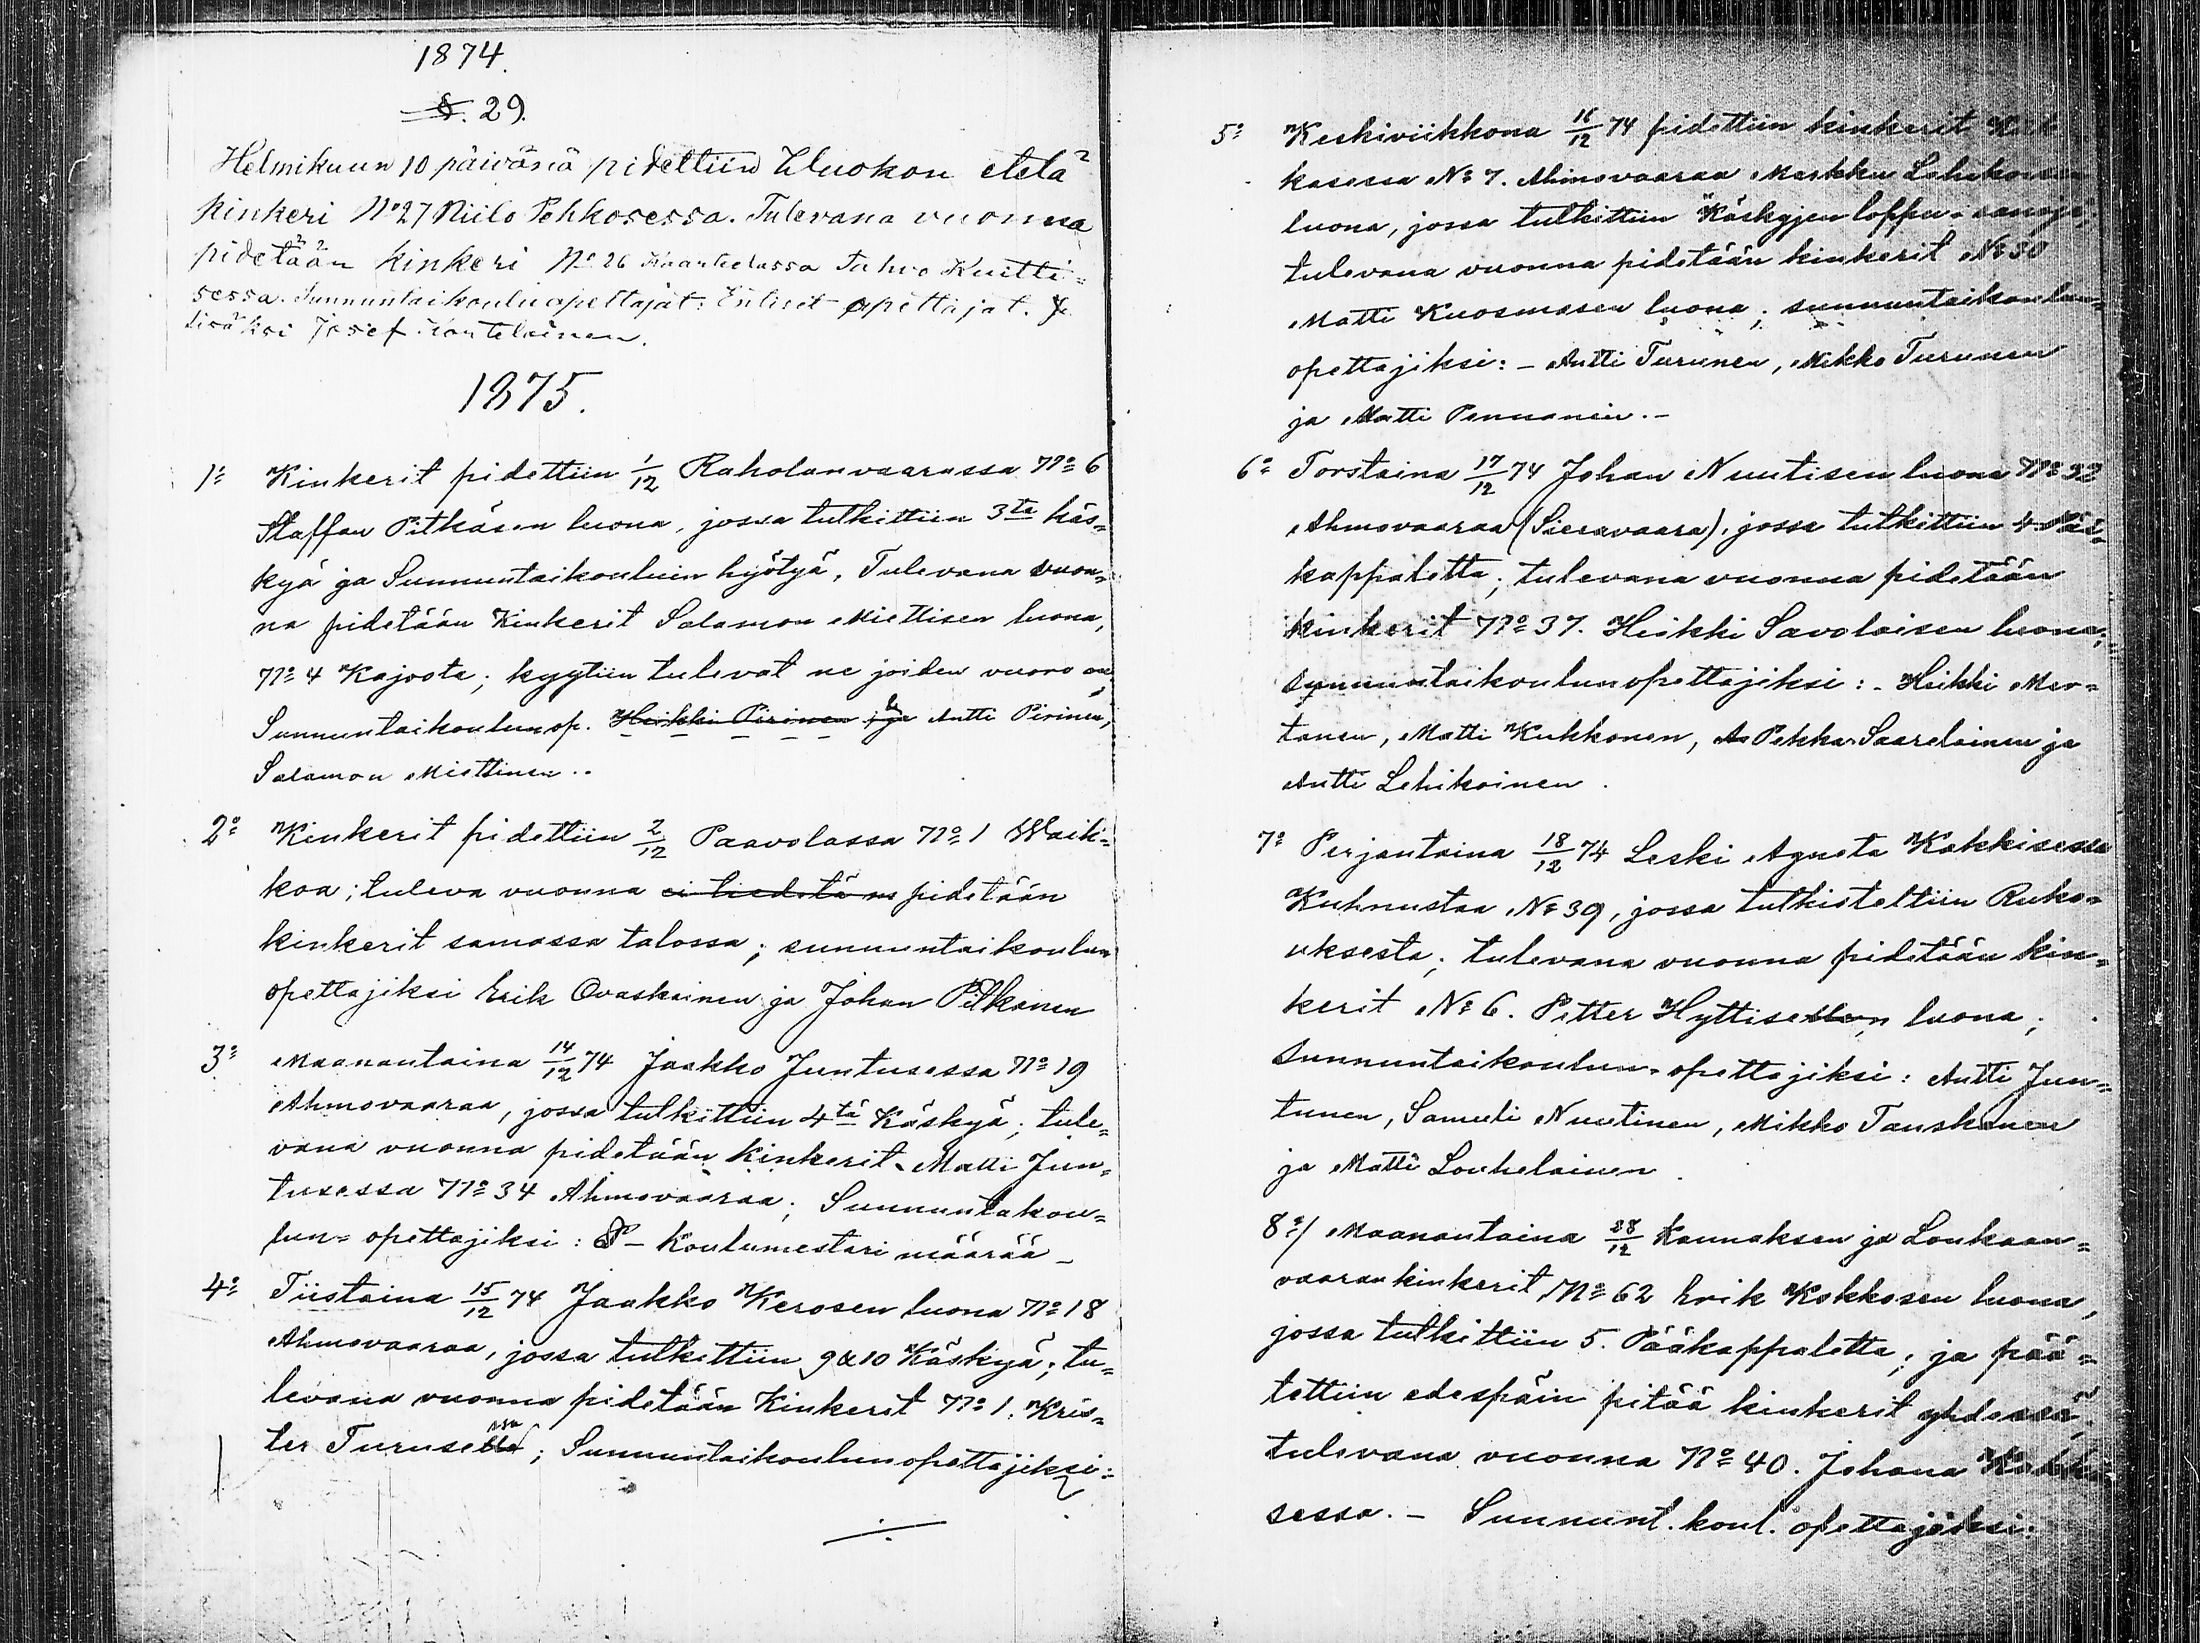 1874.
§. 29.
Helmikuun 10 päivänä pidettiin Uluokon etelä
kinkeri No 27 Niilo Pehkosessa. Tulevana vuonna
pidetään kinkeri No 26 Tahvo Kuitti=
sessa. Sunnuntaikouluopettajat: Entiset opettajat. Ja
lisäksi Josef Kontelainen.
1875.
1o Kinkerit pidettiin 1/12 Raholanvaarassa No 6
Staffan Pitkäsen luona, jossa tutkittiin 3ta käs=
kyä ja Sunnuntaikouluin hyötyä, Tulevana vuon=
na pidetään Kinkerit Salamon Miettisen luona,
No 4 Kajoota; kyytiin tulevat ne joiden vuoro on,
Sunnuntaikoulunop. Heikki Pirinen ja Antti Pirinen,
Salamon Miettinen..
2o Kinkerit pidettiin 2/12 Paavolassa No 1 Waik=
koa; tuleva vuonna ei tiedetä pidetään
kinkerit samassa talossa; sunnuntaikoulun
opettajiksi Erik Ovaskainen ja Johan Pitkänen
3o Maanantaina 14/12 74 Jaakko Juntusessa No 19
Ahmovaaraa, jossa tutkittiin 4tä Käskyä; tule=
vana vuonna pidetään Kinkerit Matti Jun=
tusessa No 34 Ahmovaaraa; Sunnuntakou=
lun= opettajiksi: - Koulumestari määrää -
4o Tiistaina 15/12 74 Jaakko Kerosen luona No 18
Ahmovaaraa, jossa tutkittiin 9 & 10 Käskyä; tu=
levana vuonna pidetään Kinkerit No 1. Kris=
ter Turusessa; Sunnuntaikoulunopettajiksi:
5o Keskiviikkona 16/12 74 pidettiin kinkerit
kasessa No 7. Ahmovaaraa Markku Lehikoisen
luona, jossa tutkittiin Käskyjen loppu=sanoja;
tulevana vuonna pidetään kinkerit No 30
Matti Kuosmasen luona; sunnuntaikoulun=
opettajiksi: - Antti Turunen, Mikko Turunen
ja Matti Pennanen. -
6o Torstaina 17/12 74 Johan Nuutisen luona No 32
Ahmovaaraa (Sieravaara), jossa tutkittiin 4 Pää=
kappaletta; tulevana vuonna pidetään
kinkerit No 37. Heikki Savolaisen luona;
sunnuntaikoulunopettajiksi: - Heikki Mar=
tanen, Matti Kukkonen, Pekka Saarelainen ja
Antti Lehikoinen.
7o Perjantaina 18/12 74 Leski Agneta Kakkisessa
Kuhnustaa No 39, jossa tutkisteltiin Ruko=
uksesta; tulevana vuonna pidetään kin=
kerit No 6. Petter Hyttisen luona;
Sunnuntaikoulun=opettajiksi: Antti Jun=
tunen, Samuli Nuutinen, Mikko Tanskanen
ja Matti Louhelainen.
8o/ Maanantaina 28/12 Kannaksen ja Loukaan=
vaaran kinkerit, No 62 Erik Kokkosen luona,
jossa tutkittiin 5. Pääkappaletta; ja pää=
tettiin edespäin pitää kinkerit yhdessä;
tulevana vuonna No 40. Johana
sessa. - Sunnunt. koul. opettajiksi.